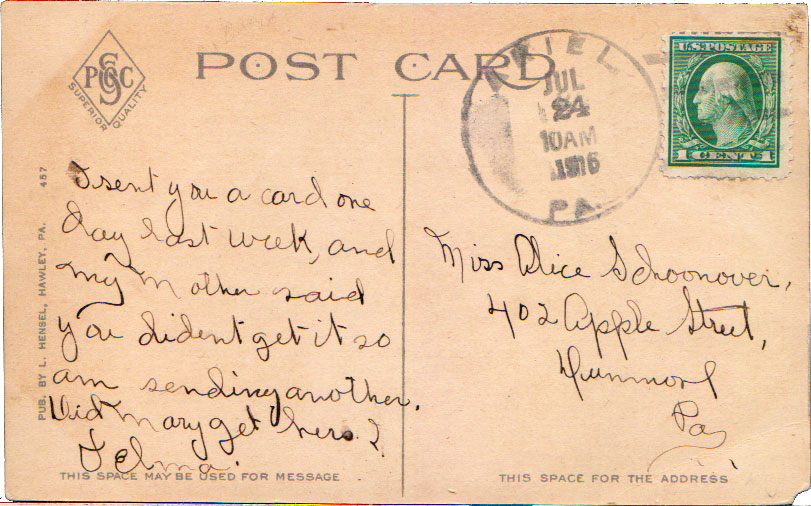 POST CARD
SGC
P C
SUPERIOR QUALITY
ARIEL
JUL
24
10AM
1916
PA.
U.S. POSTAGE
1 CENT 1
457
PUB. BY L. HENSEL, HAWLEY, PA.
I sent you a card one
day last week, and
my mother said
you dident get it so
am sending another.
Did Mary get hers?
Telma.
THIS SPACE MAY BE USED FOR MESSAGE
Miss Alice Schoonover,
402 Apple Street,
Dunmore
Pa,
THIS SPACE FOR THE ADDRESS